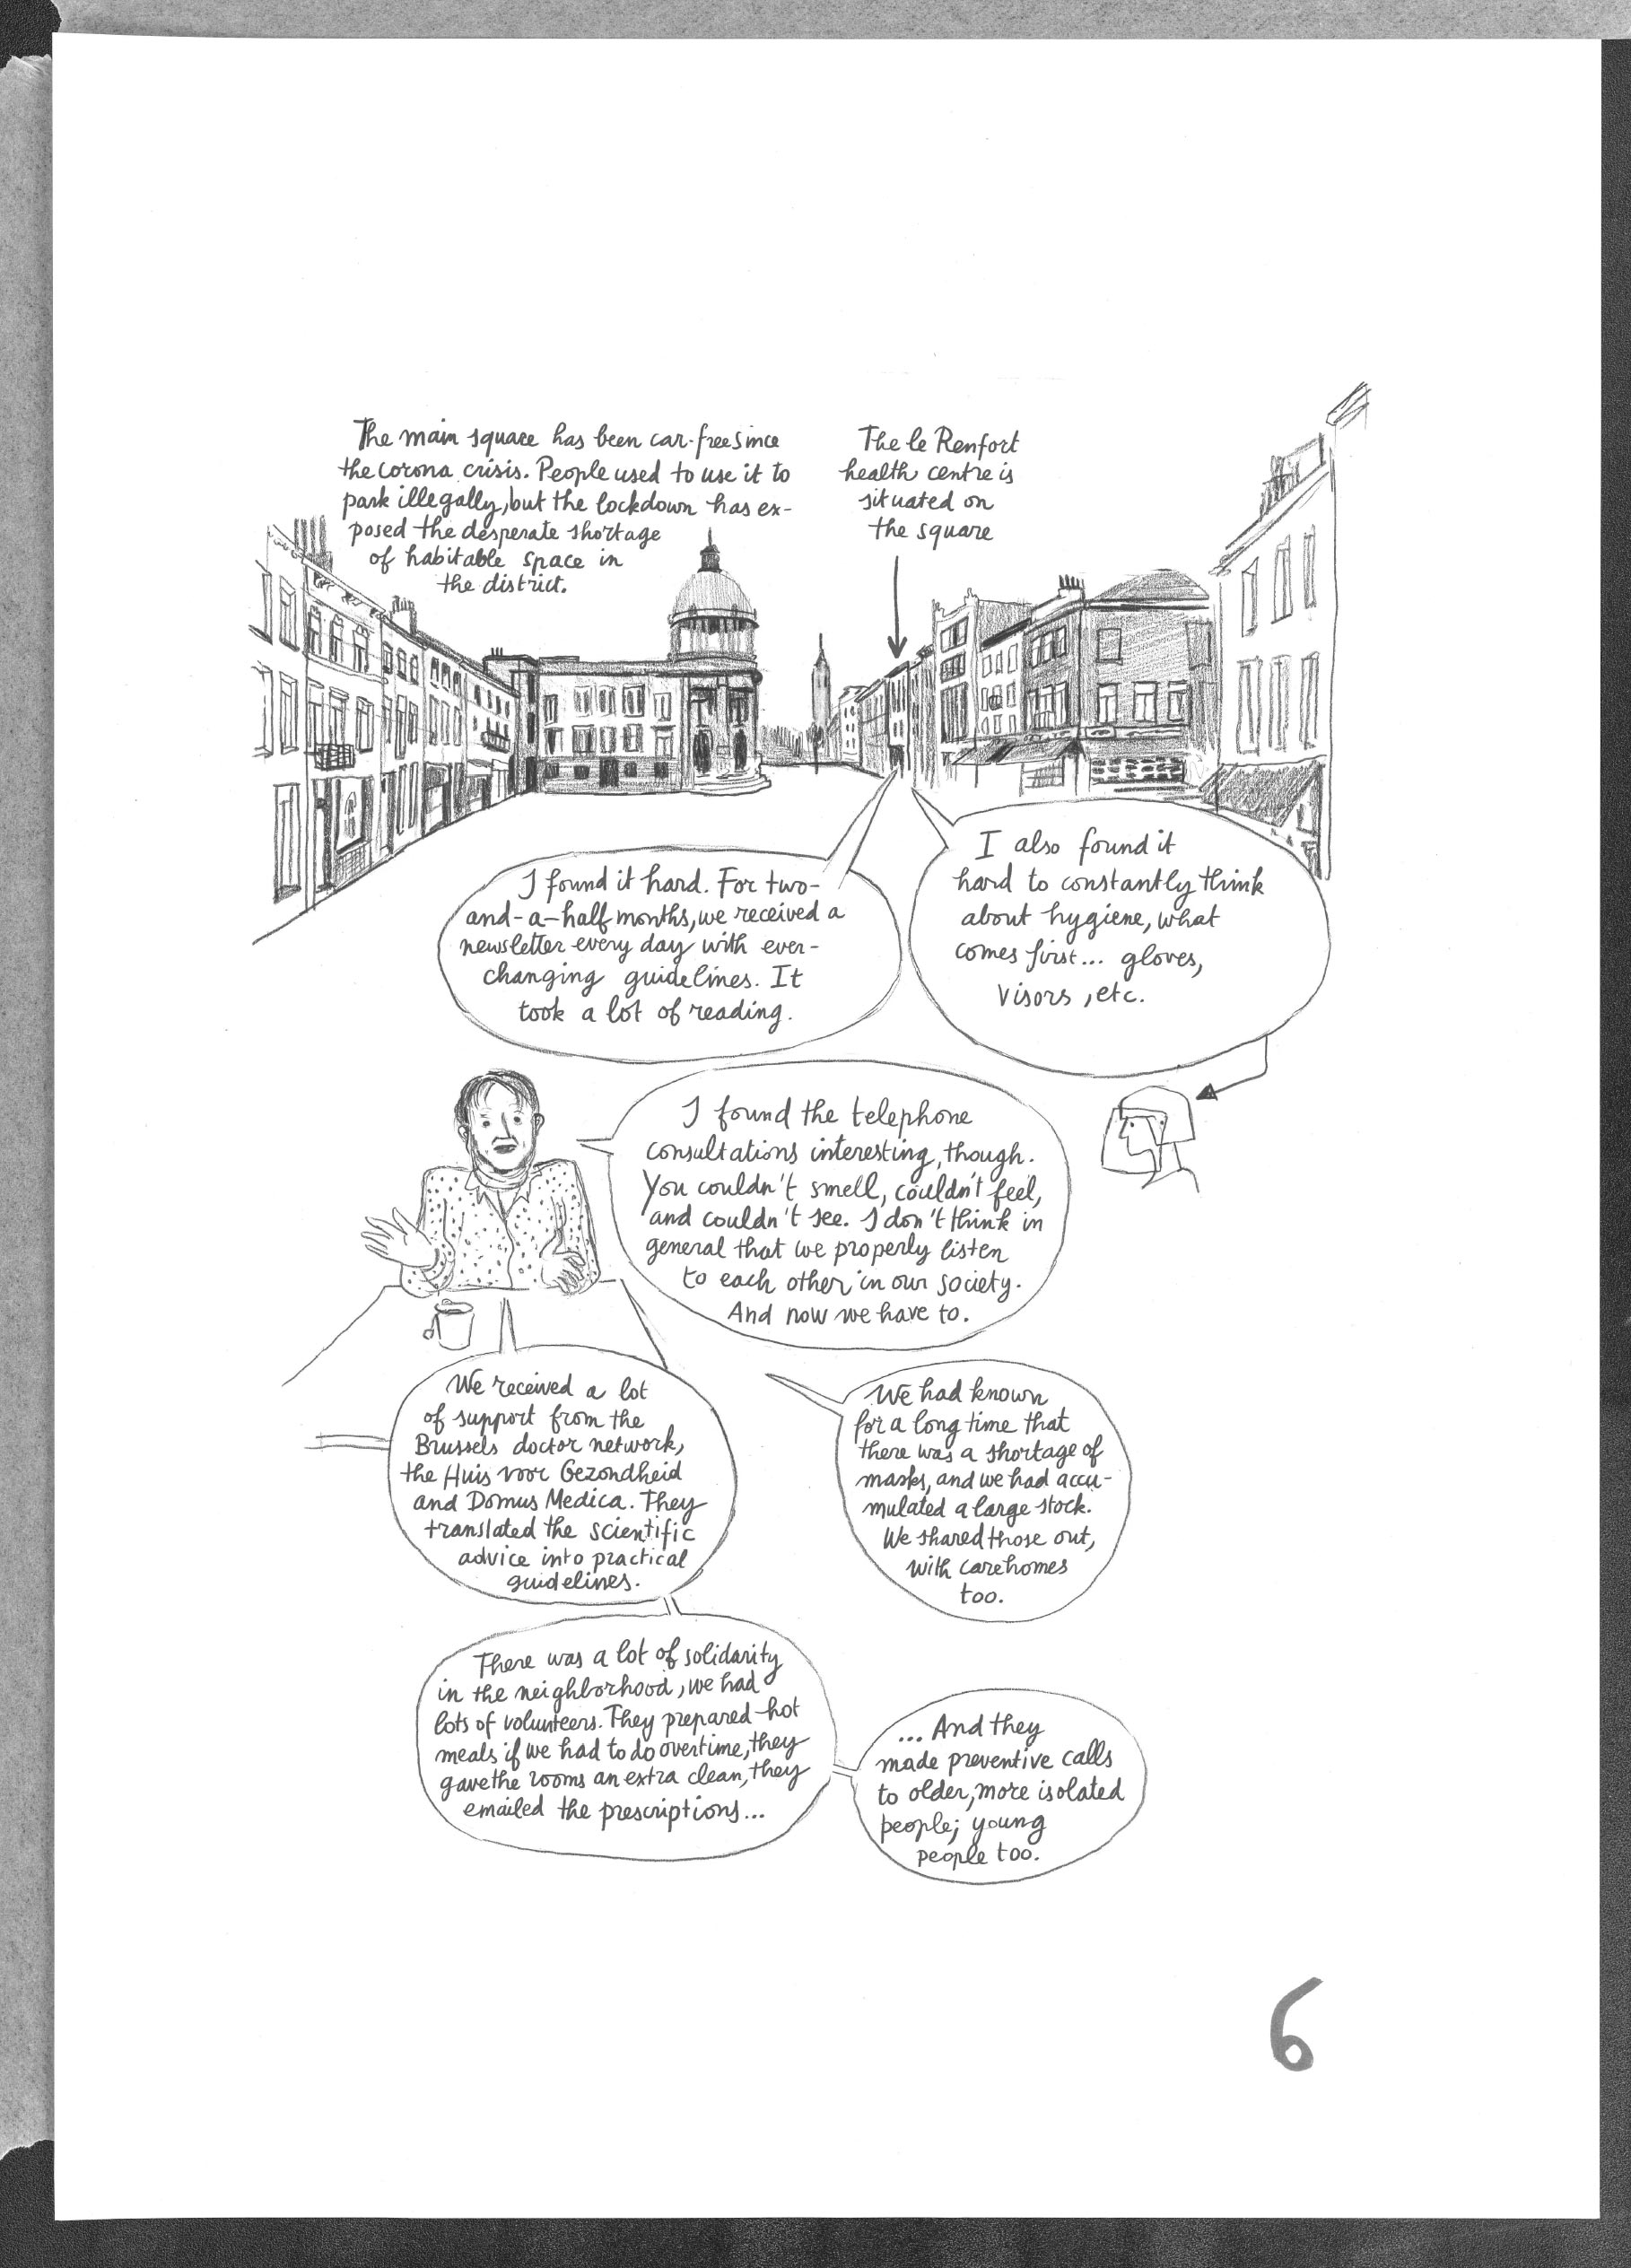 The main square has been car-free since
the corona crisis. People used to use it to
park illegally, but the lockdown has ex-
posed the desperate shortage
of habitable space in
the district.
The le Renfort
health centre is
situated on
the square
I found it hard. For two-
and-a-half months, we received a
newsletter every day with ever-
changing guidelines. It
took a lot of reading.
I also found it
hard to constantly think
about hygiene, what
comes first... gloves,
visors, etc.
I found the telephone
consultations interesting, though.
You couldn't smell, couldn't feel,
and couldn't see. I don't think in
general that we properly listen
to each other in our society.
And now we have to.
We received a lot
of support from the
Brussels doctor network,
the Huis voor Gezondheid
and Domus Medica. They
translated the scientific
advice into practical
guidelines.
We had known
for a long time that
there was a shortage of
masks, and we had accu-
mulated a large stock.
We shared those out,
with carehomes
too.
There was a lot of solidarity
in the neighborhood, we had
lots of volunteers. They prepared hot
meals if we had to do overtime, they
gave the rooms an extra clean, they
emailed the prescriptions...
... And they
made preventive calls
to older, more isolated
people; young
people too.
6